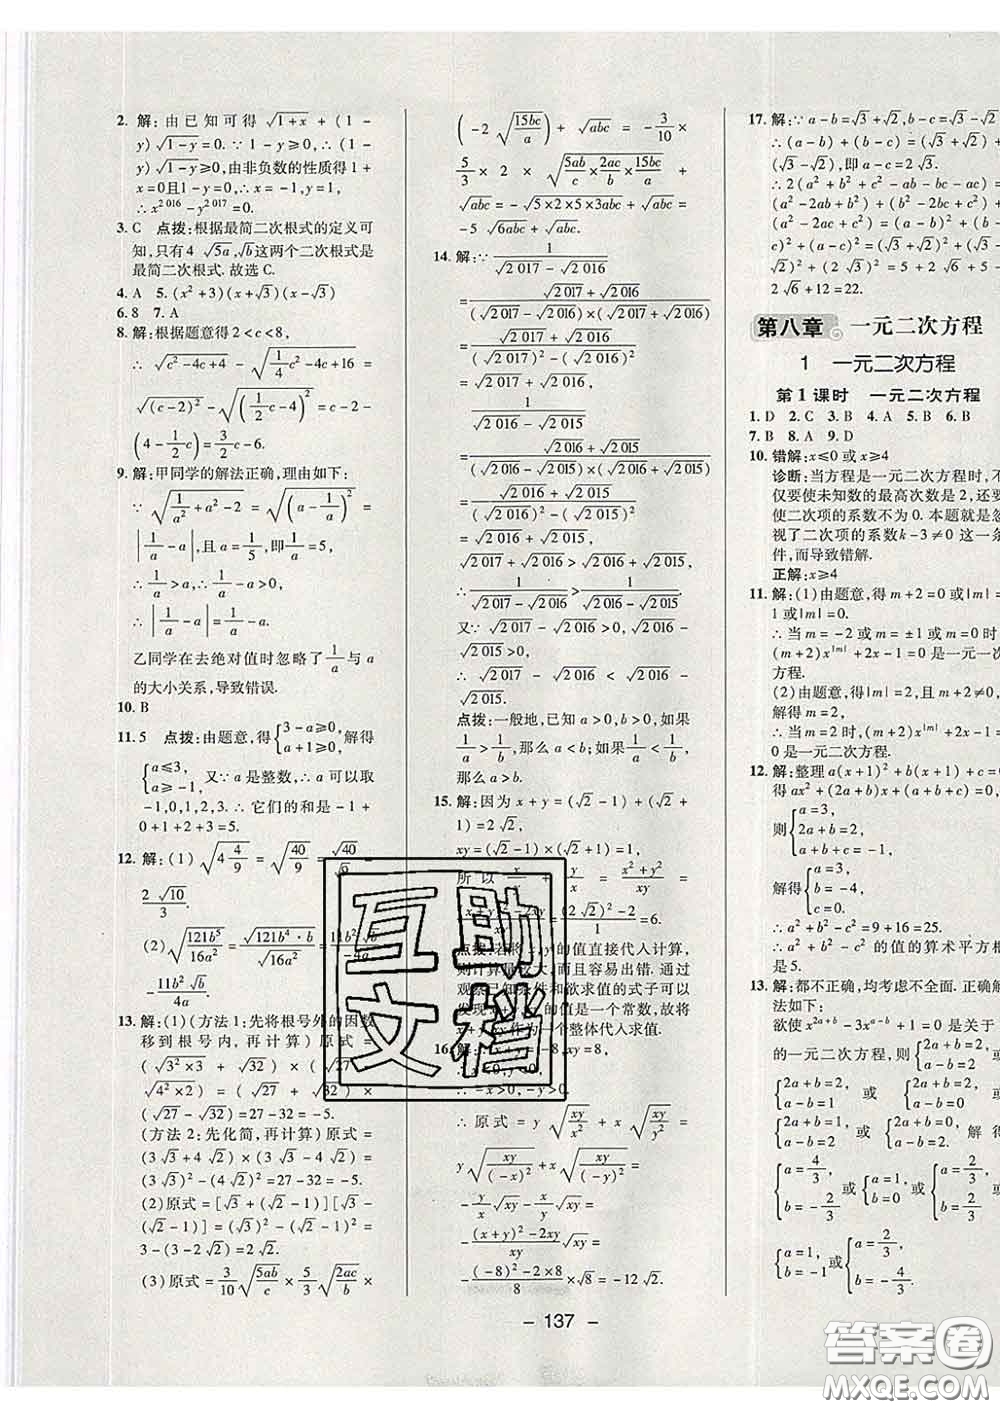 2. 解:由已知可得 √(1+x) + (1-
y)√(1-y) = 0. ∵ 1-y ≥ 0, ∴ (1-y)
√(1-y) ≥ 0, 由非负数的性质得 1+
x=0且1-y=0, ∴ x=-1, y=1.
∴ x^2 016 - y^2 017 = 0.
3. C 点拨:根据最简二次根式的定义可
知,只有 4√(5a), √b 这两个二次根式是
最简二次根式.故选 C.
4. A 5. (x²+3)(x+√3)(x-√3)
6. 8 7. A
8. 解:根据题意得 2<c<8,
∴ √(c²-4c+4) - √(1/4 c²-4c+16) =
√((c-2)²) - √((1/2 c-4)²) = c-2-
(4-1/2 c) = 3/2 c-6.
9. 解:甲同学的解法正确,理由如下:
√(1/a²+a²-2) = √((a-1/a)²) =
|1/a-a|, 且 a=1/5, 即 1/a=5,
∴ 1/a>a, ∴ 1/a-a>0,
∴ |1/a-a| = 1/a-a.
乙同学在去绝对值时忽略了 1/a 与 a
的大小关系,导致错误.
10. B
11. 5 点拨:由题意,得{3-a≥0, a+1≥0, 解得
{a≤3, a≥-1. 又∵ a 是整数,∴ a 可以取
-1,0,1,2,3. ∴ 它们的和是-1+
0+1+2+3=5.
12. 解:(1) √(4 4/9) = √(40/9) = √40/√9 =
2√10/3.
(2) √(121b⁵/16a²) = √(121b⁴·b)/√(16a²) =
-11b²√b/4a.
13. 解:(1)(方法 1:先将根号外的因数
移到根号内,再计算)原式=
(√(3²×3) + √(4²×2))(√(3²×3) -
√(4²×2)) = (√27 + √32) ×
(√27-√32) = 27-32 = -5.
(方法 2:先化简,再计算)原式=
(3√3+4√2)(3√3-4√2) =
(3√3)²-(4√2)² = 27-32 = -5.
(2)原式=[√3+(√2-1)][√3-
(√2-1)] = (√3)²-(√2-1)² =
3-(3-2√2) = 2√2.
(3)原式= 3/10 √(5ab/c) × 5/3 √(2ac/b) ×
(-2√(15bc/a)) + √(abc) = -3/10 ×
5/3 × 2 × √(5ab/c × 2ac/b × 15bc/a) +
√(abc) = -√(5×2×5×3abc) + √(abc) =
-5√(6abc) + √(abc).
14. 解:∵ 1/(√2 017-√2 016)
= (√2 017+√2 016)/((√2 017-√2 016)×(√2 017+√2 016))
= (√2 017+√2 016)/((√2 017)²-(√2 016)²)
= √2 017+√2 016,
1/(√2 016-√2 015)
= (√2 016+√2 015)/((√2 016-√2 015)×(√2 016+√2 015))
= (√2 016+√2 015)/((√2 016)²-(√2 015)²)
= √2 016+√2 015,
√2 017+√2 016>√2 016+√2 015,
∴ 1/(√2 017-√2 016) > 1/(√2 016-√2 015).
又∵ √2 017-√2 016>0, √2 016
-√2 015>0,
∴ √2 017-√2 016<√2 016-
√2 015.
点拨:一般地,已知 a>0,b>0,如果
1/a>1/b, 那么 a<b; 如果 1/a<1/b,
那么 a>b.
15. 解:因为 x+y=(√2-1)+(√2+
1)=2√2,
xy=(√2-1)×(√2+1)=1,
所以 x/y + y/x = (x²+y²)/xy =
((x+y)²-2xy)/xy = ((2√2)²-2)/1 = 6.
点拨:若将 x,y 的值直接代入计算,
则计算量较大,而且容易出错.通过
观察已知条件和欲求值的式子可以
发现 x+y,xy 的值是一个常数,故将
x+y,xy 作为一个整体代入求值.
16. 解:∵ x+y=-8,xy=8,
∴ x<0,y<0.
∴ -x>0,-y>0.
∴ 原式= y√(xy/x²) + x√(xy/y²) =
y√(xy/(-x)²) + x√(xy/(-y)²) =
-y/x √(xy) - x/y √(xy) =
-((x+y)²-2xy)/xy √(xy) =
-((-8)²-2×8)/8 × √8 = -12√2.
17. 解:∵ a-b=√3+√2, b-c=√3-√2,
∴ (a-b)+(b-c)=(√3+√2)+
(√3-√2), 即 a-c=2√3.
∴ 2(a²+b²+c²-ab-bc-ac)=
(a²-2ab+b²)+(b²-2bc+c²)+
(a²-2ac+c²)=(a-b)²+(b-
c)²+(a-c)²=(√3+√2)²+(√3-
√2)²+(2√3)²=5+2√6+5-
2√6+12=22.
第八章 一元二次方程
1 一元二次方程
第 1 课时 一元二次方程
1. D 2. C 3. B 4. A 5. B 6. B
7. B 8. A 9. D
10. 错解:x≤0 或 x≥4
诊断:当方程是一元二次方程时,不
仅要使未知数的最高次数是 2,还要
使二次项的系数不为 0. 本题就是忽
视了二次项的系数 k-3≠0 这一条
件,而导致错解.
正解:x≥4
11. 解:(1)由题意,得 m+2=0 或|m|=
1 或|m|=0.
∴ 当 m=-2 或 m=±1 或 m=0 时,
(m+2)x^|m|+2x-1=0 是一元一次
方程.
(2)由题意,得|m|=2,且 m+2≠0,
解得 m=2.
∴ 当 m=2 时,(m+2)x^|m|+2x-1=
0 是一元二次方程.
12. 解:整理 a(x+1)²+b(x+1)+c=0
得 ax²+(2a+b)x+(a+b+c)=0,
则{a=3, 2a+b=2, a+b+c=-1,
解得{a=3, b=-4, c=0.
∴ a²+b²-c²=9+16=25.
∴ a²+b²-c² 的值的算术平方根
是 5.
13. 解:都不正确,均考虑不全面. 正确解
法如下:
欲使 x^(2a+b)-3x^(a-b)+1=0 是关于 x
的一元二次方程,则{2a+b=2, a-b=2 或
{2a+b=2, a-b=1 或{2a+b=1, a-b=2 或
{2a+b=2, a-b=0 或{2a+b=0, a-b=2. 解得
{a=4/3, b=-2/3 或{a=1, b=0 或{
{a=1, b=-1 或{a=2/3, b=-4/3.
- 137 -
互助
文档
答案圈
MXQE.COM